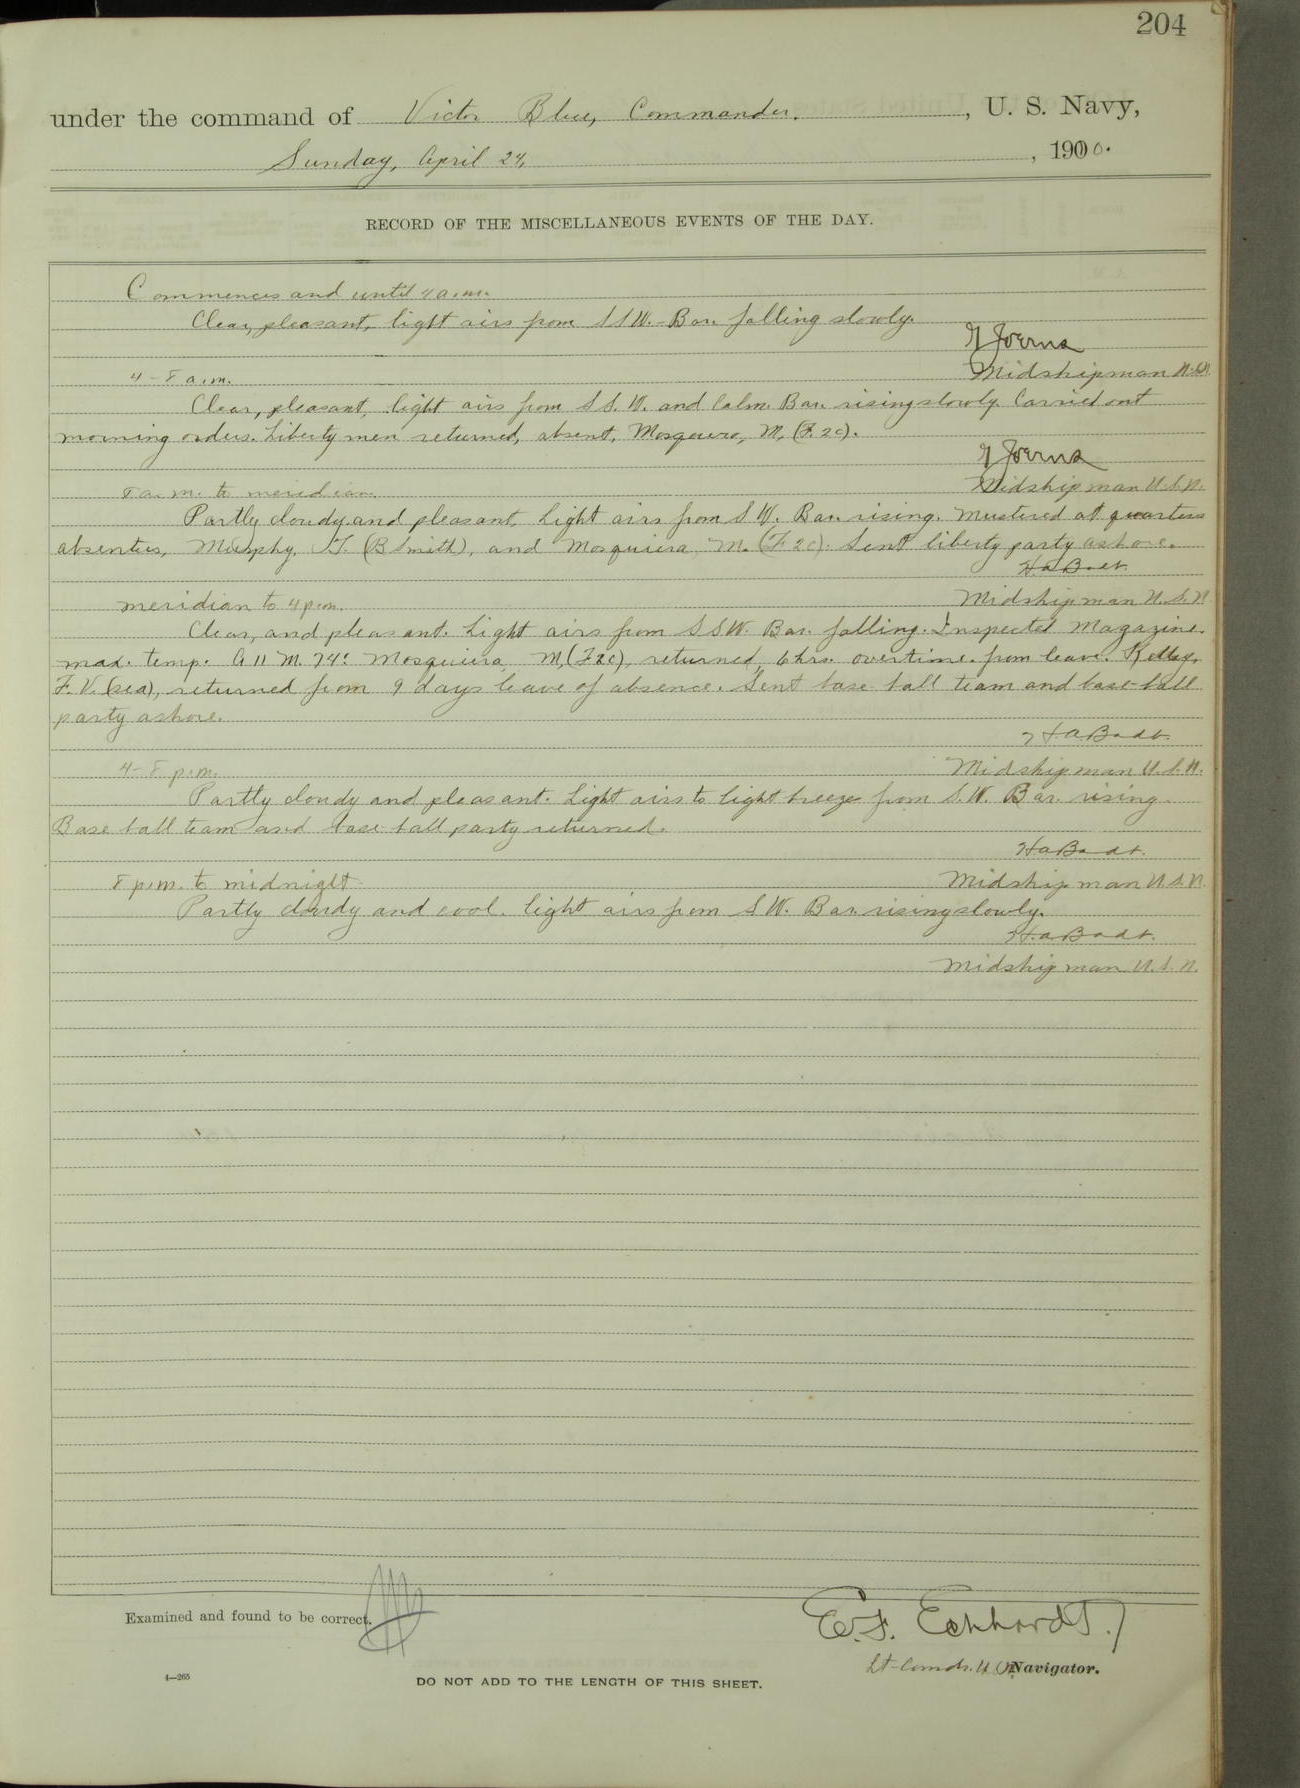 204
under the command of Victor Blue, Commander, U. S. Navy,
Sunday, April 24, 1910.
RECORD OF THE MISCELLANEOUS EVENTS OF THE DAY.
Commences and until 4 a.m.
Clear, pleasant, light airs from SSW. Bar. falling slowly.
Midshipman U.S.N.
4-8 a.m.
Clear, pleasant, light airs from S.S.W. and Calm. Bar. rising slowly. Carried out
morning orders. Liberty men returned, absent, Mosquera, M, (F.2c).
Midshipman U.S.N.
8 a.m. to meridian.
Partly cloudy and pleasant, Light airs from SW. Bar. rising. Mustered at quarters
absentees, Murphy, (B Smith), and Mosquiera, M. (F.2c). Sent liberty party ashore.
H.A. Badt.
meridian to 4 p.m.
Midshipman U.S.N.
Clear, and pleasant. Light airs from SSW. Bar. falling. Inspected Magazine.
max. temp. A 11 M. 74°. Mosquiera, M, (F2c), returned, 6 hrs. overtime. from leave. Kelley,
F.V. (sea), returned from 9 days leave of absence. Sent base ball team and base-ball
party ashore.
H.A. Badt.
4-8 p.m.
Midshipman U.S.N.
Partly cloudy and pleasant. Light airs to light breeze from S.W. Bar. rising.
Base ball team and base ball party returned.
H.A. Badt.
8 p.m. to midnight
Midshipman U.S.N.
Partly cloudy and cool. light airs from SW. Bar. rising slowly.
H.A. Badt.
Midshipman U.S.N.
Examined and found to be correct.
E.F. Eckhardt.
Lt-Comdr. U.S.N. Navigator.
4—265
DO NOT ADD TO THE LENGTH OF THIS SHEET.